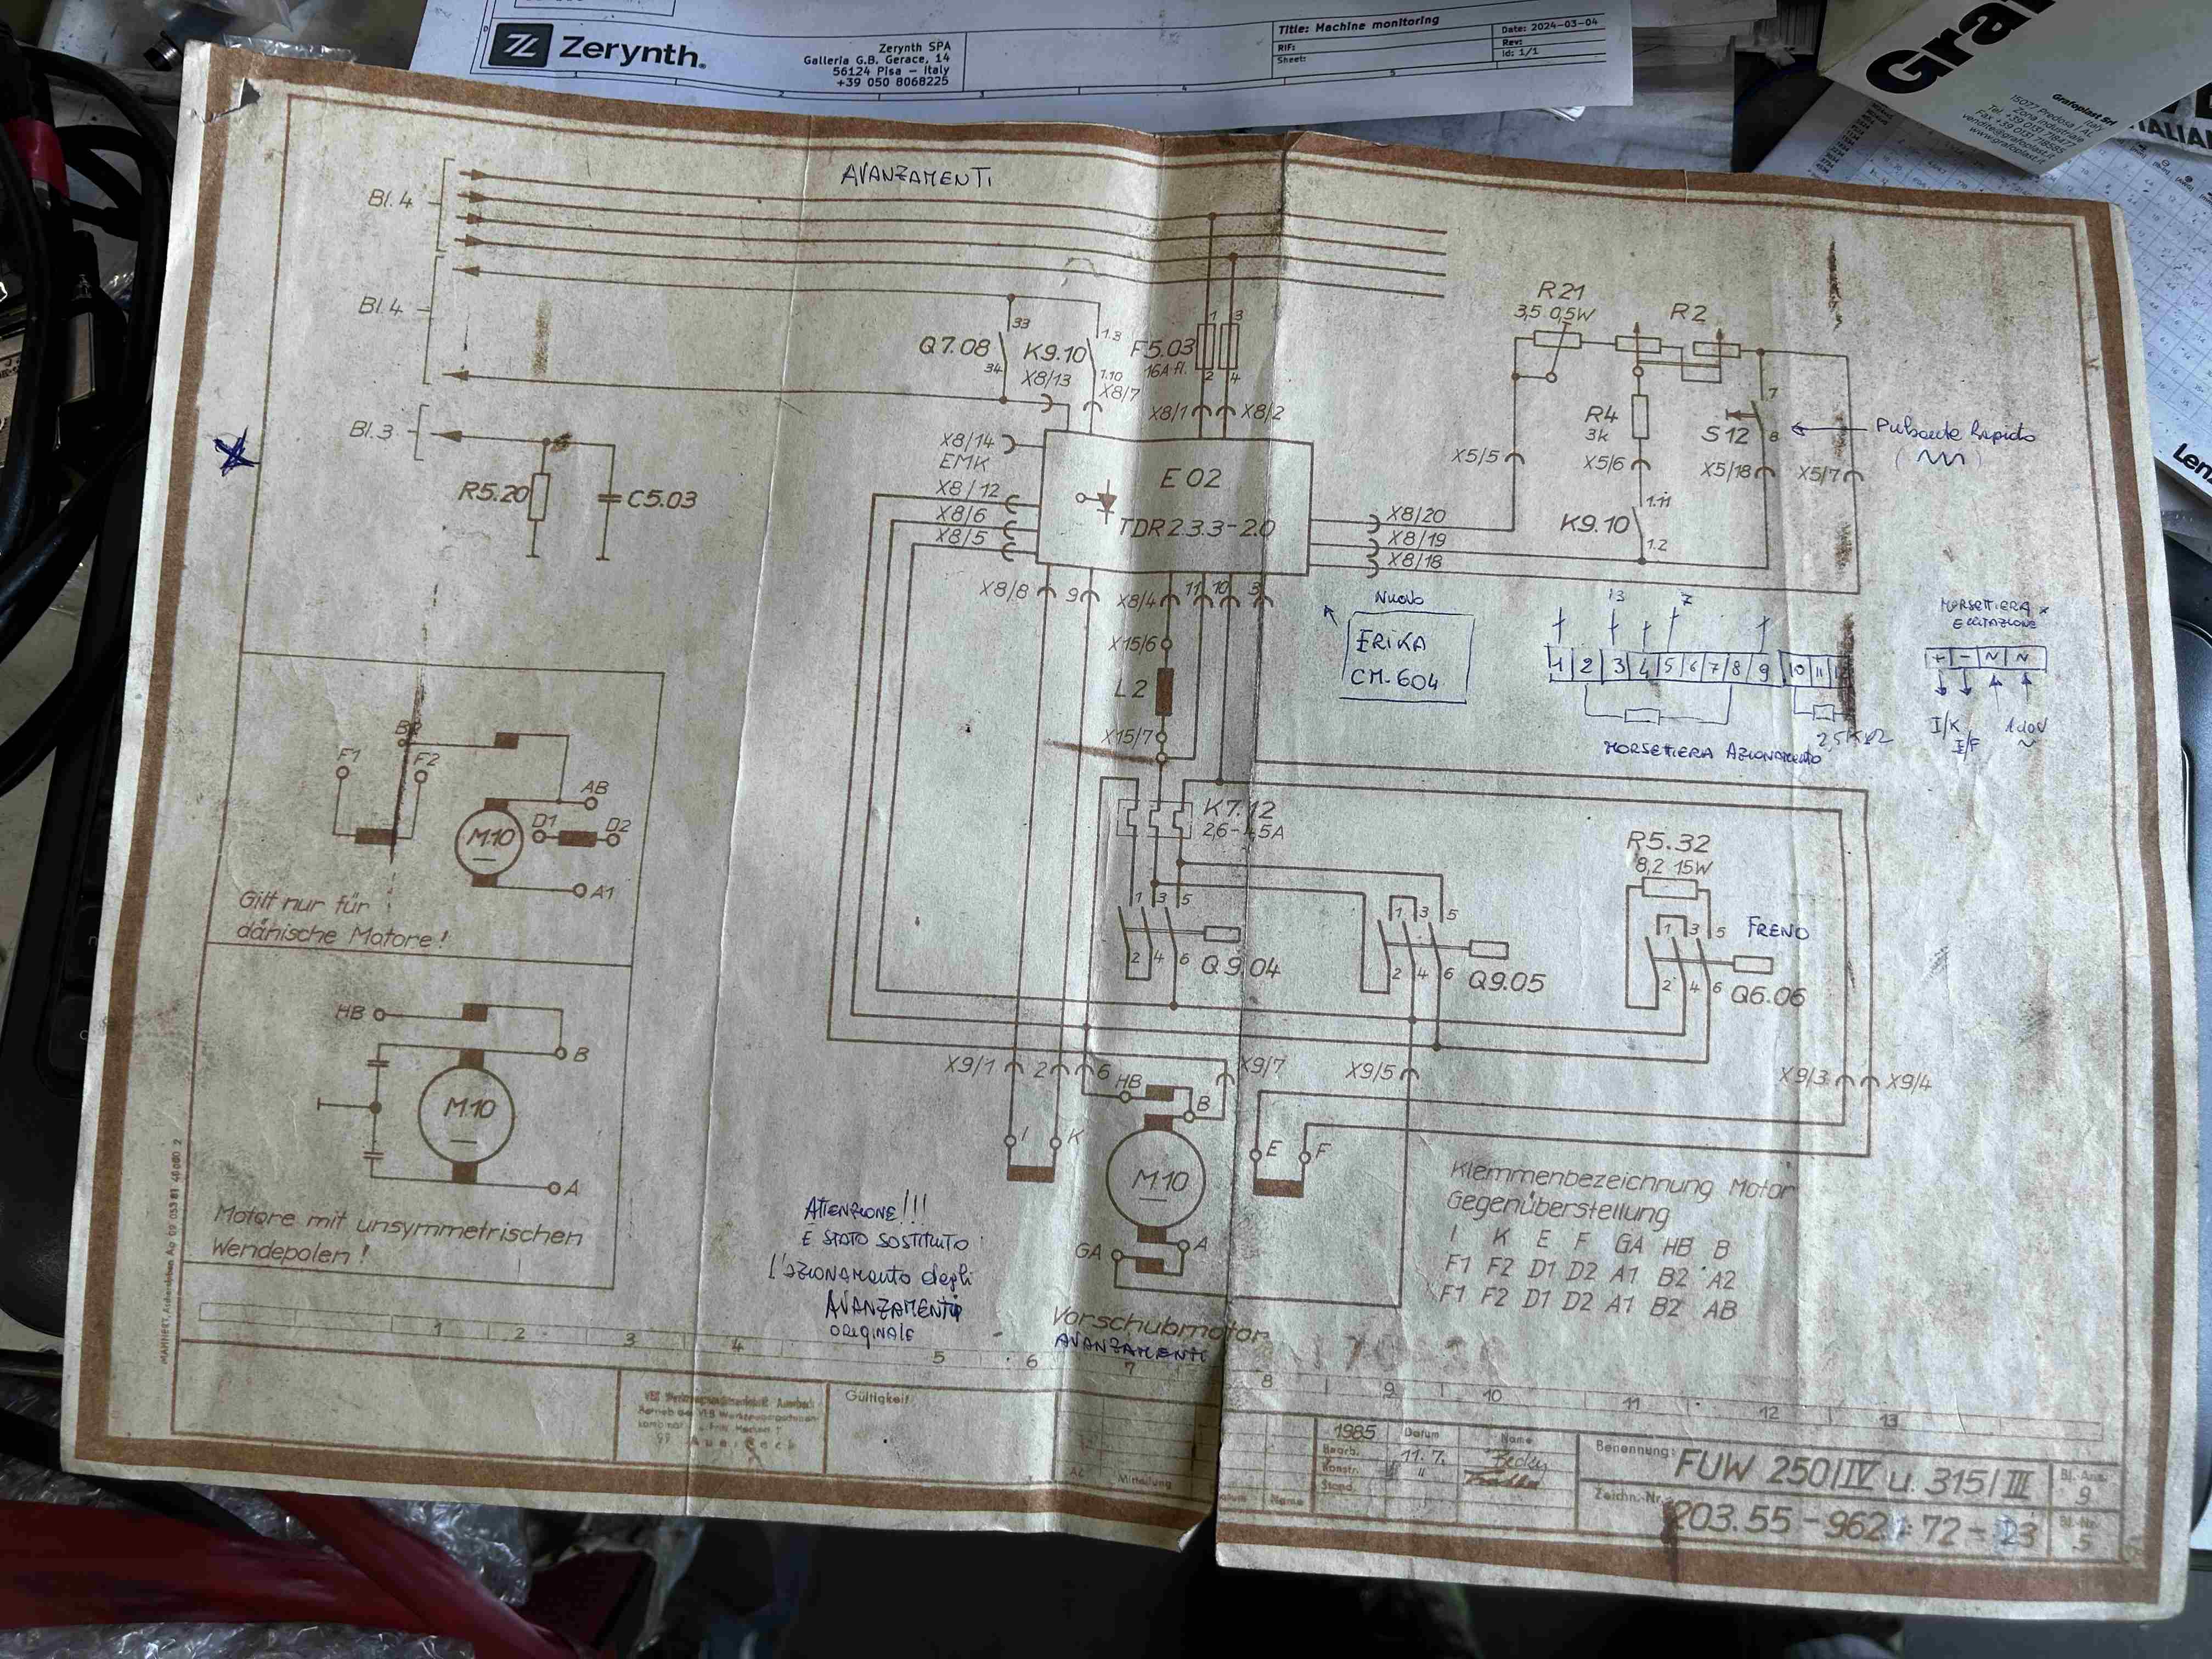 Zerynth.
Zerynth SPA
Galleria G.B. Gerace, 14
56124 Pisa – Italy
+39 050 8068225
Title: Machine monitoring
RIF:
Sheet:
Date: 2024-03-04
Rev:
Id: 1/1
Graf
Grafoplast Srl
15077 Predosa / AL
Zona Industriale
Tel. +39 0131 719477
Fax +39 0131 718585
vendite@grafoplast.it
www.grafoplast.it
Len
AVANZAMENTI
Bl.4
Bl.4
Bl.3
R5.20
C5.03
Q7.08
33
34
K9.10
1.3
1.10
X8/13
X8/7
F5.03
16A fl.
1
3
2
4
X8/1
X8/2
X8/14
EMK
X8/12
X8/6
X8/5
E02
TDR 2.3.3-2.0
X8/20
X8/19
X8/18
R21
3,5 0,5W
R2
R4
3k
S12
7
8
Pulsante Rapido
X5/5
X5/6
X5/18
X5/7
K9.10
1.11
1.2
X8/8
9
X8/4
11
10
3
X15/6
L2
X15/7
NUOVO
ERIKA
CM-604
13
7
1 2 3 4 5 6 7 8 9 10 11
2,5KΩ
MORSETTIERA AZIONAMENTO
MORSETTIERA x
ECCITAZIONE
+ − N N
I/K
E/F
K7.12
2,6-4,5A
1 3 5
2 4 6
Q9.04
1 3 5
2 4 6
Q9.05
R5.32
8,2 15W
1 3 5
FRENO
2 4 6
Q6.06
BR
F1
F2
AB
D1
D2
M10
A1
Gilt nur für
dänische Motore!
HB
B
M10
A
Motore mit unsymmetrischen
Wendepolen!
X9/1
2
6
X9/7
X9/5
X9/3
X9/4
HB
B
I
K
M10
E
F
GA
A
Vorschubmotor
AVANZAMENTI
ATTENZIONE!!!
E STATO SOSTITUITO
l'AZIONAMENTO degli
AVANZAMENTI
ORIGINALE
Klemmenbezeichnung Motor
Gegenüberstellung
I K E F GA HB B
F1 F2 D1 D2 A1 B2 A2
F1 F2 D1 D2 A1 B2 AB
1 2 3 4 5 6 7 8 9 10 11 12 13
Gültigkeit
Mitteilung
Name
1985
Datum
Name
Bearb.
11.7.
Konstr.
"
Stand.
Benennung:
FUW 250/IV u. 315/III
Bl.-Anz.
9
Zeichn.-Nr.
203.55-962:72-23
Bl.-Nr.
5